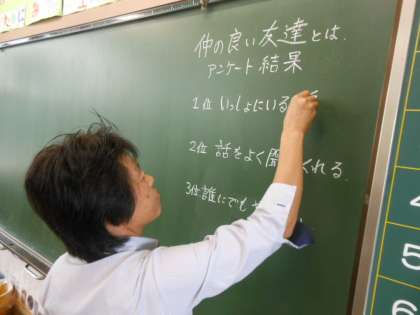 仲の良い友達とは、
アンケート結果
1位 いっしょにいる
2位 話をよく聞 くれる。
3位 誰にでも
4
5
6